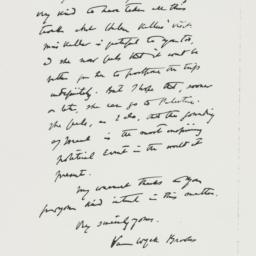 very kind to have taken all this
trouble about Helen Keller's visit.
Miss Keller is grateful to you too,
& she now feels that it would be
better for her to postpone the trip
indefinitely. But I hope that, sooner
or later, she can go to Palestine.
She feels, as I do, that the founding
of Israel is the most inspiring
political event in the world at
present.
My warmest thanks to you
for your interest in this matter.
Very sincerely yours,
Van Wyck Brooks